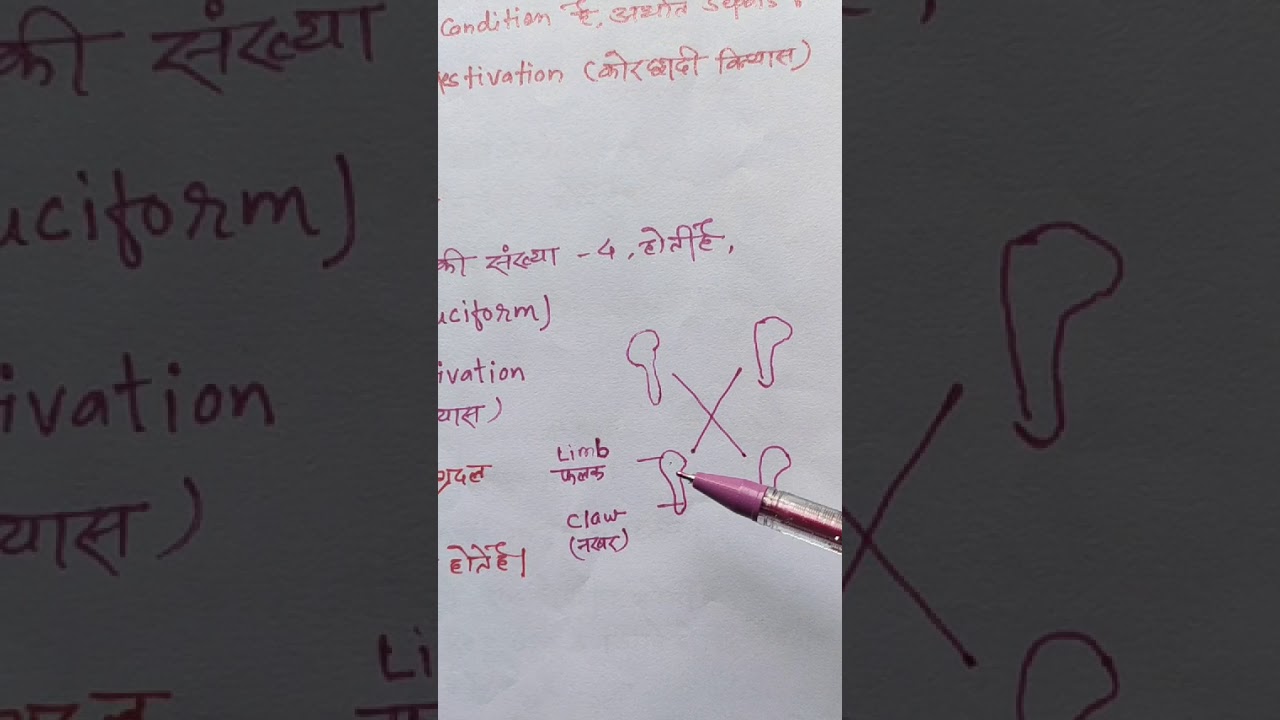 condition है, अर्थात
estivation (कोरछादी विन्यास)
की संख्या - 4, होती है,
uciform)
ivation
यास)
Limb
फलक
ग्रदल
Claw
(नखर)
होते है।